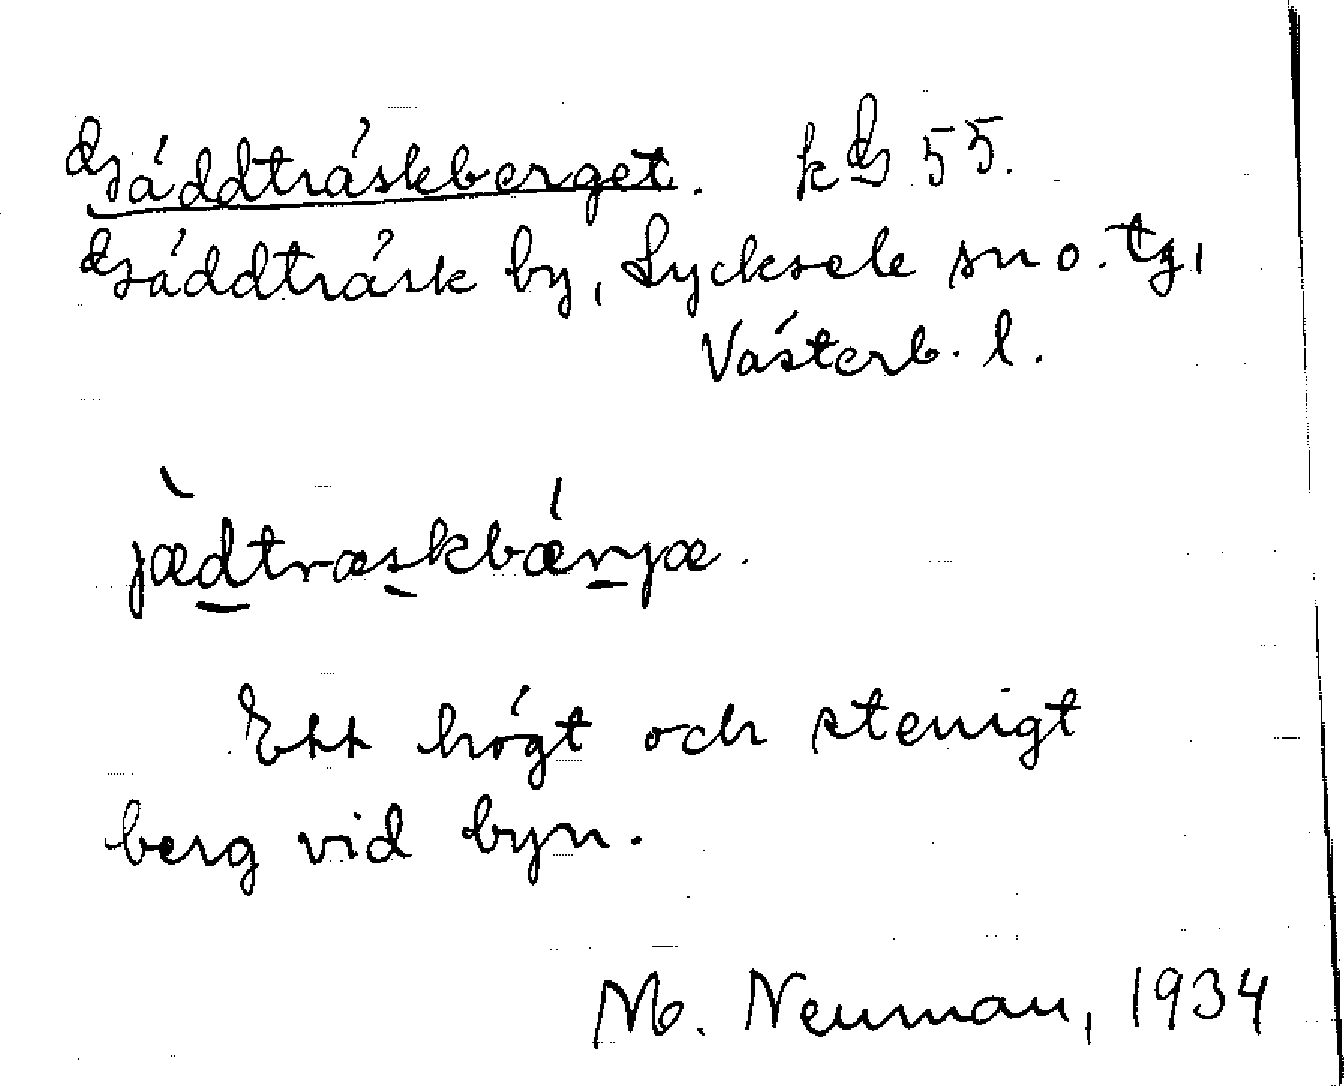 Gäddträskberget. 55.
Gäddträsk by, Lycksele sn o. tg,
Västerb. l.
jæ̀d̲træs̲kbǽr̲jæ.
Ett högt och stenigt
berg vid byn.
M. Neuman, 1934